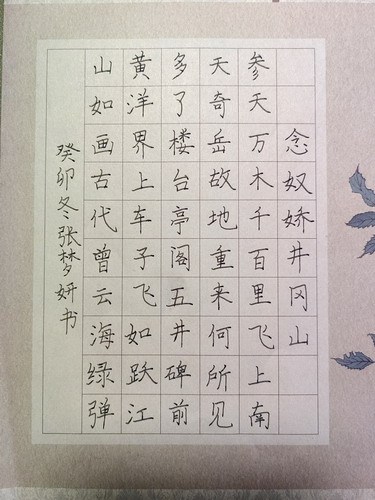 念奴娇井冈山
参天万木千百里飞上南
天奇岳故地重来何所见
多了楼台亭阁五井碑前
黄洋界上车子飞如跃江
山如画古代曾云海绿弹
癸卯冬张梦妍书